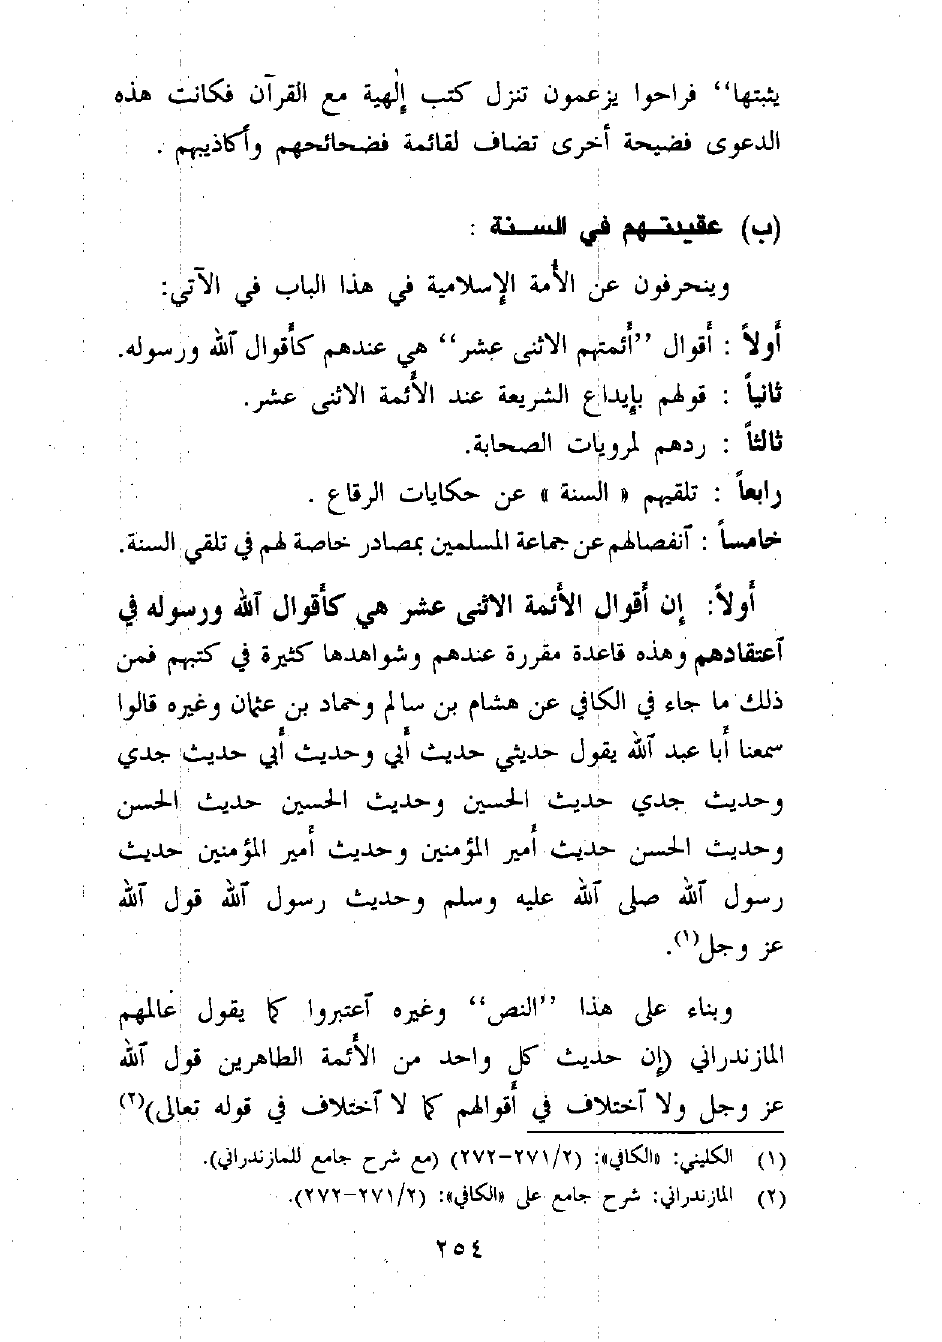 يثبتها‘‘ فراحوا يزعمون تنزل كتب إلٰهية مع القرآن فكانت هذه
الدعوى فضيحة أخرى تضاف لقائمة فضحائحهم وأكاذيبهم .
(ب) عقيدتهم في السنة :
وينحرفون عن الأمة الإسلامية في هذا الباب في الآتي:
أولاً : أقوال ’’أئمتهم الاثنى عشر‘‘ هي عندهم كأقوال ٱلله ورسوله.
ثانياً : قولهم بإيداع الشريعة عند الأئمة الاثنى عشر.
ثالثاً : ردهم لمرويات الصحابة.
رابعاً : تلقيهم « السنة » عن حكايات الرقاع .
خامساً : ٱنفصالهم عن جماعة المسلمين بمصادر خاصة لهم في تلقي السنة.
أولاً: إن أقوال الأئمة الاثنى عشر هي كأقوال ٱلله ورسوله في
ٱعتقادهم وهذه قاعدة مقررة عندهم وشواهدها كثيرة في كتبهم فمن
ذلك ما جاء في الكافي عن هشام بن سالم وحماد بن عثمان وغيره قالوا
سمعنا أبا عبد ٱلله يقول حديثي حديث أبي وحديث أبي حديث جدي
وحديث جدي حديث الحسين وحديث الحسين حديث الحسن
وحديث الحسن حديث أمير المؤمنين وحديث أمير المؤمنين حديث
رسول ٱلله صلى ٱلله عليه وسلم وحديث رسول ٱلله قول ٱلله
عز وجل(١).
وبناء على هذا ’’النص‘‘ وغيره ٱعتبروا كما يقول عالمهم
المازندراني (إن حديث كل واحد من الأئمة الطاهرين قول ٱلله
عز وجل ولا ٱختلاف في أقوالهم كما لا ٱختلاف في قوله تعالى)(٢)
(١) الكليني: «الكافي»: (٢/ ٢٧١-٢٧٢) (مع شرح جامع للمازندراني).
(٢) المازندراني: شرح جامع على «الكافي»: (٢/ ٢٧١-٢٧٢).
٢٥٤